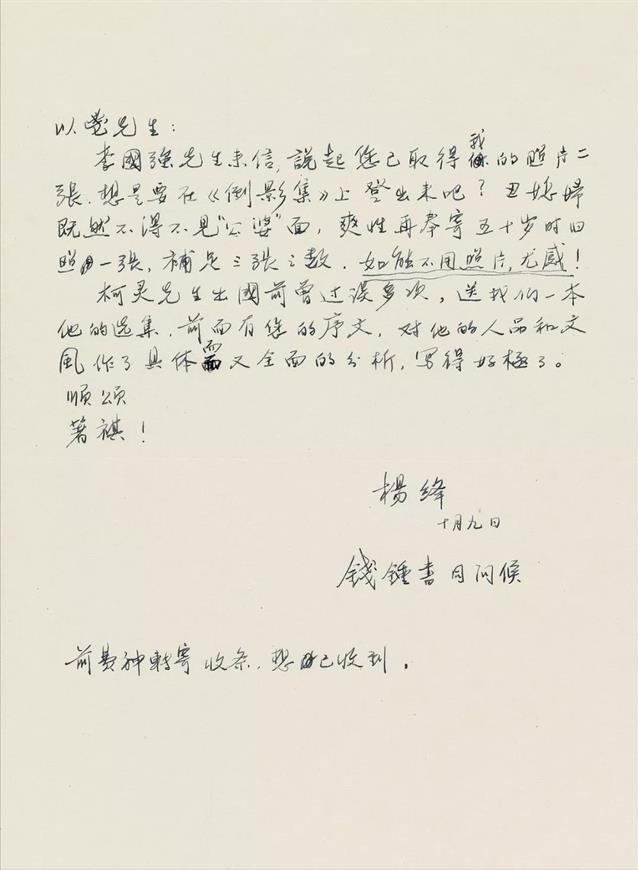 以鬯先生：
李國强先生来信，說起您已取得我的照片二
張．想是要在《倒影集》上登出来吧？丑媳婦
既然不得不見“公婆”面，爽性再奉寄五十岁时旧
照一張，補足三張之数．如能不用照片，尤感！
柯灵先生出國前曾过谈多次，送我们一本
他的选集．前面有您的序文，对他的人品和文
風作了具体而又全面的分析，写得好極了。
順頌
著祺！
楊绛
十月九日
錢鍾書同问候
前费神轉寄收条．想已收到．